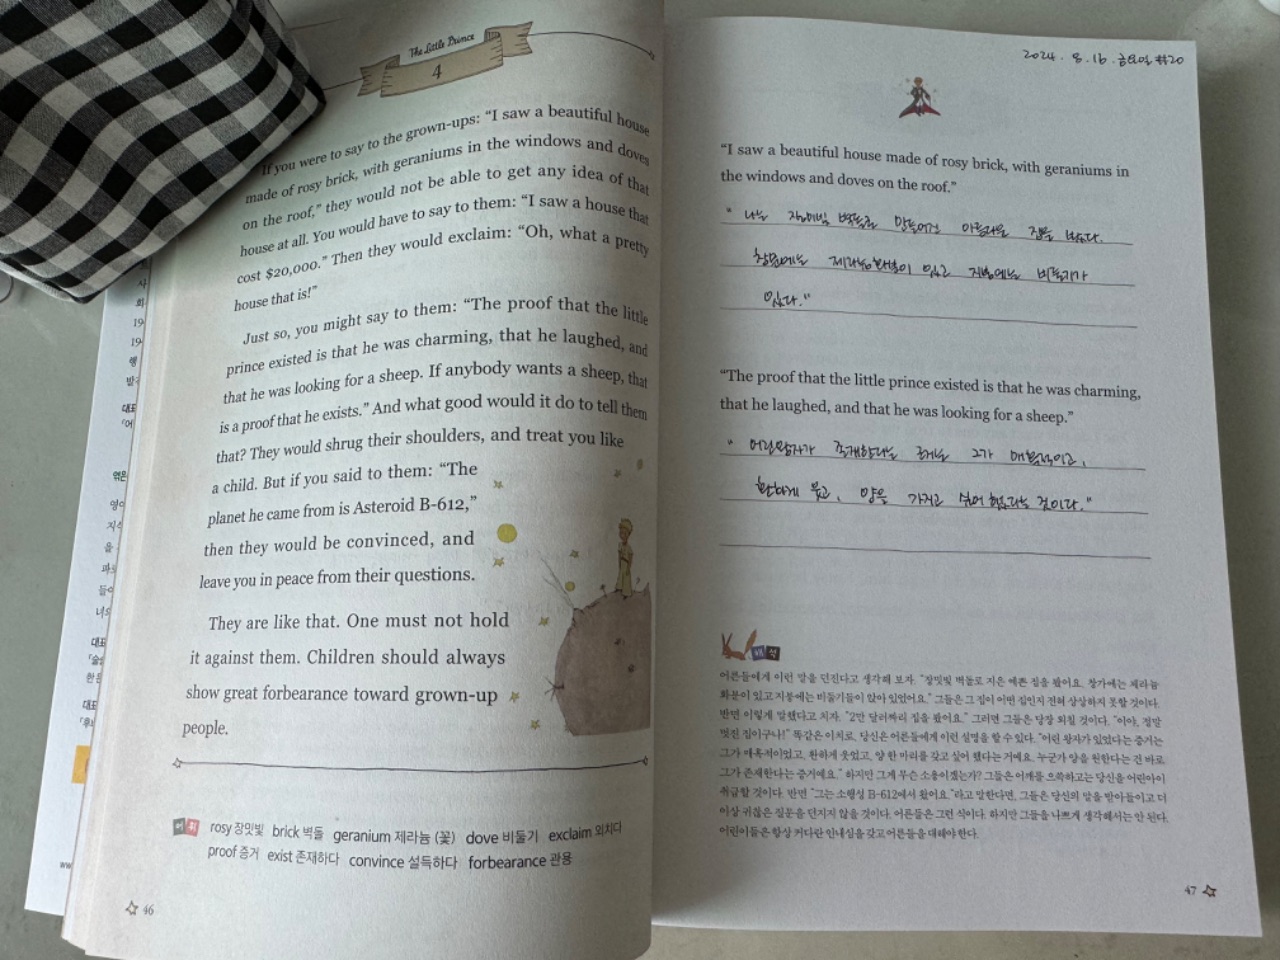 The Little Prince
4
If you were to say to the grown-ups: “I saw a beautiful house
made of rosy brick, with geraniums in the windows and doves
on the roof,” they would not be able to get any idea of that
house at all. You would have to say to them: “I saw a house that
cost $20,000.” Then they would exclaim: “Oh, what a pretty
house that is!”
Just so, you might say to them: “The proof that the little
prince existed is that he was charming, that he laughed, and
that he was looking for a sheep. If anybody wants a sheep, that
is a proof that he exists.” And what good would it do to tell them
that? They would shrug their shoulders, and treat you like
a child. But if you said to them: “The
planet he came from is Asteroid B-612,”
then they would be convinced, and
leave you in peace from their questions.
They are like that. One must not hold
it against them. Children should always
show great forbearance toward grown-up
people.
어휘
rosy 장밋빛 brick 벽돌 geranium 제라늄 (꽃) dove 비둘기 exclaim 외치다
proof 증거 exist 존재하다 convince 설득하다 forbearance 관용
46
2024. 8. 16. 금요일 #20
“I saw a beautiful house made of rosy brick, with geraniums in
the windows and doves on the roof.”
" 나는 장미빛 벽돌로 만들어진 아름다운 집을 봤다.
창문에는 제라늄화분이 있고 지붕에는 비둘기가
있다."
“The proof that the little prince existed is that he was charming,
that he laughed, and that he was looking for a sheep.”
" 어린왕자가 존재한다는 증거는 그가 매력적이고,
환하게 웃고, 양을 가지고 싶어 했다는 것이다."
해석
어른들에게 이런 말을 던진다고 생각해 보자. “장밋빛 벽돌로 지은 예쁜 집을 봤어요. 창가에는 제라늄
화분이 있고 지붕에는 비둘기들이 앉아 있었어요.” 그들은 그 집이 어떤 집인지 전혀 상상하지 못할 것이다.
반면 이렇게 말했다고 치자. “2만 달러짜리 집을 봤어요.” 그러면 그들은 당장 외칠 것이다. “이야, 정말
멋진 집이구나!” 똑같은 이치로, 당신은 어른들에게 이런 설명을 할 수 있다. “어린 왕자가 있었다는 증거는
그가 매혹적이었고, 환하게 웃었고, 양 한 마리를 갖고 싶어 했다는 거예요. 누군가 양을 원한다는 건 바로
그가 존재한다는 증거예요.” 하지만 그게 무슨 소용이겠는가? 그들은 어깨를 으쓱하고는 당신을 어린아이
취급할 것이다. 반면 “그는 소행성 B-612에서 왔어요.”라고 말한다면, 그들은 당신의 말을 받아들이고 더
이상 귀찮은 질문을 던지지 않을 것이다. 어른들은 그런 식이다. 하지만 그들을 나쁘게 생각해서는 안 된다.
어린이들은 항상 커다란 인내심을 갖고 어른들을 대해야 한다.
47